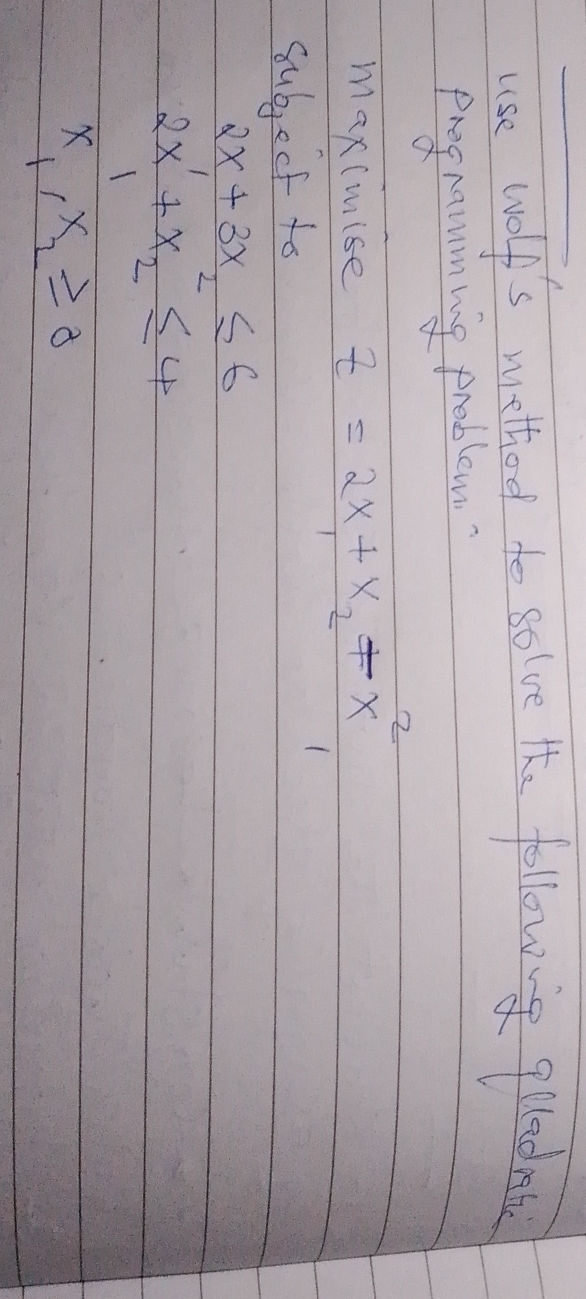 use wolf's method to solve the following quadratic
programming problem."
maximise z = 2x₁ + x₂ - x₁²
subject to
2x₁ + 3x₂ ≤ 6
2x₁ + x₂ ≤ 4
x₁, x₂ ≥ 0